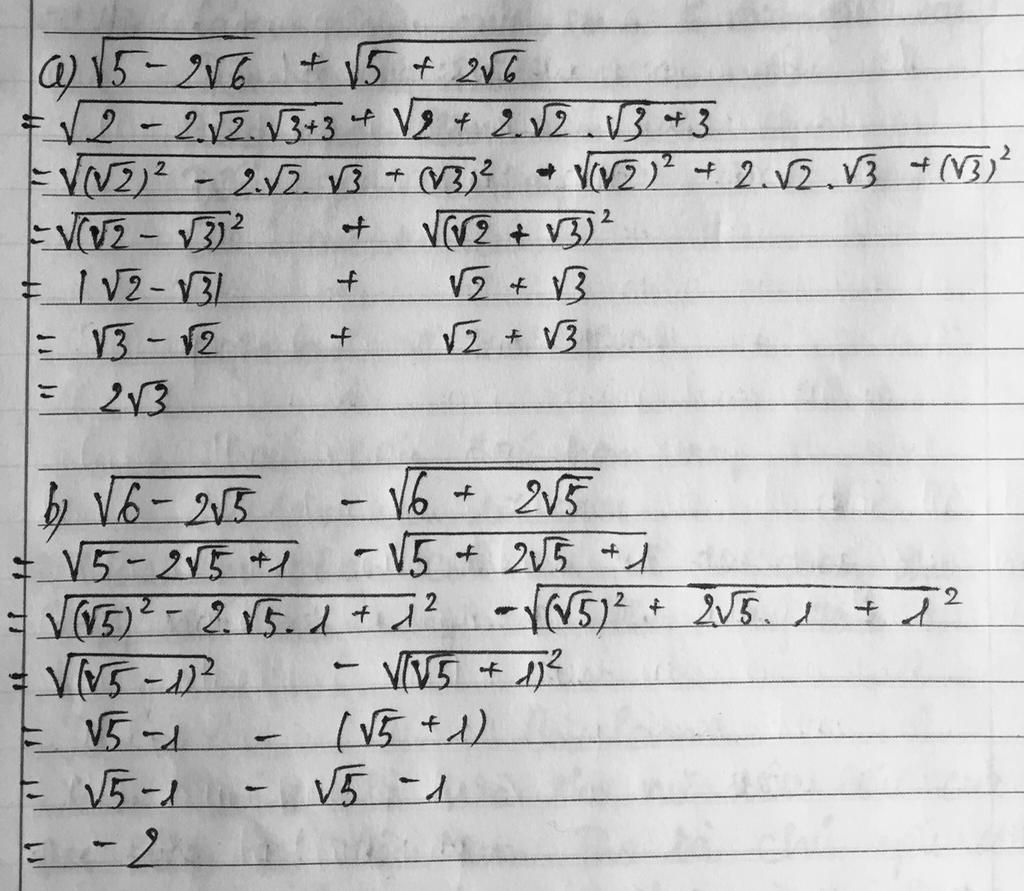 a) √5 - 2√6 + √5 + 2√6
= √2 - 2.√2.√3+3 + √2 + 2.√2.√3+3
= √(√2)² - 2.√2.√3 + (√3)² + √(√2)² + 2.√2.√3 + (√3)²
= √(√2 - √3)² + √(√2 + √3)²
= |√2 - √3| + √2 + √3
= √3 - √2 + √2 + √3
= 2√3
b) √6 - 2√5 - √6 + 2√5
= √5 - 2√5 + 1 - √5 + 2√5 + 1
= √(√5)² - 2.√5.1 + 1² - √(√5)² + 2√5.1 + 1²
= √(√5 - 1)² - √(√5 + 1)²
= √5 - 1 - (√5 + 1)
= √5 - 1 - √5 - 1
= - 2